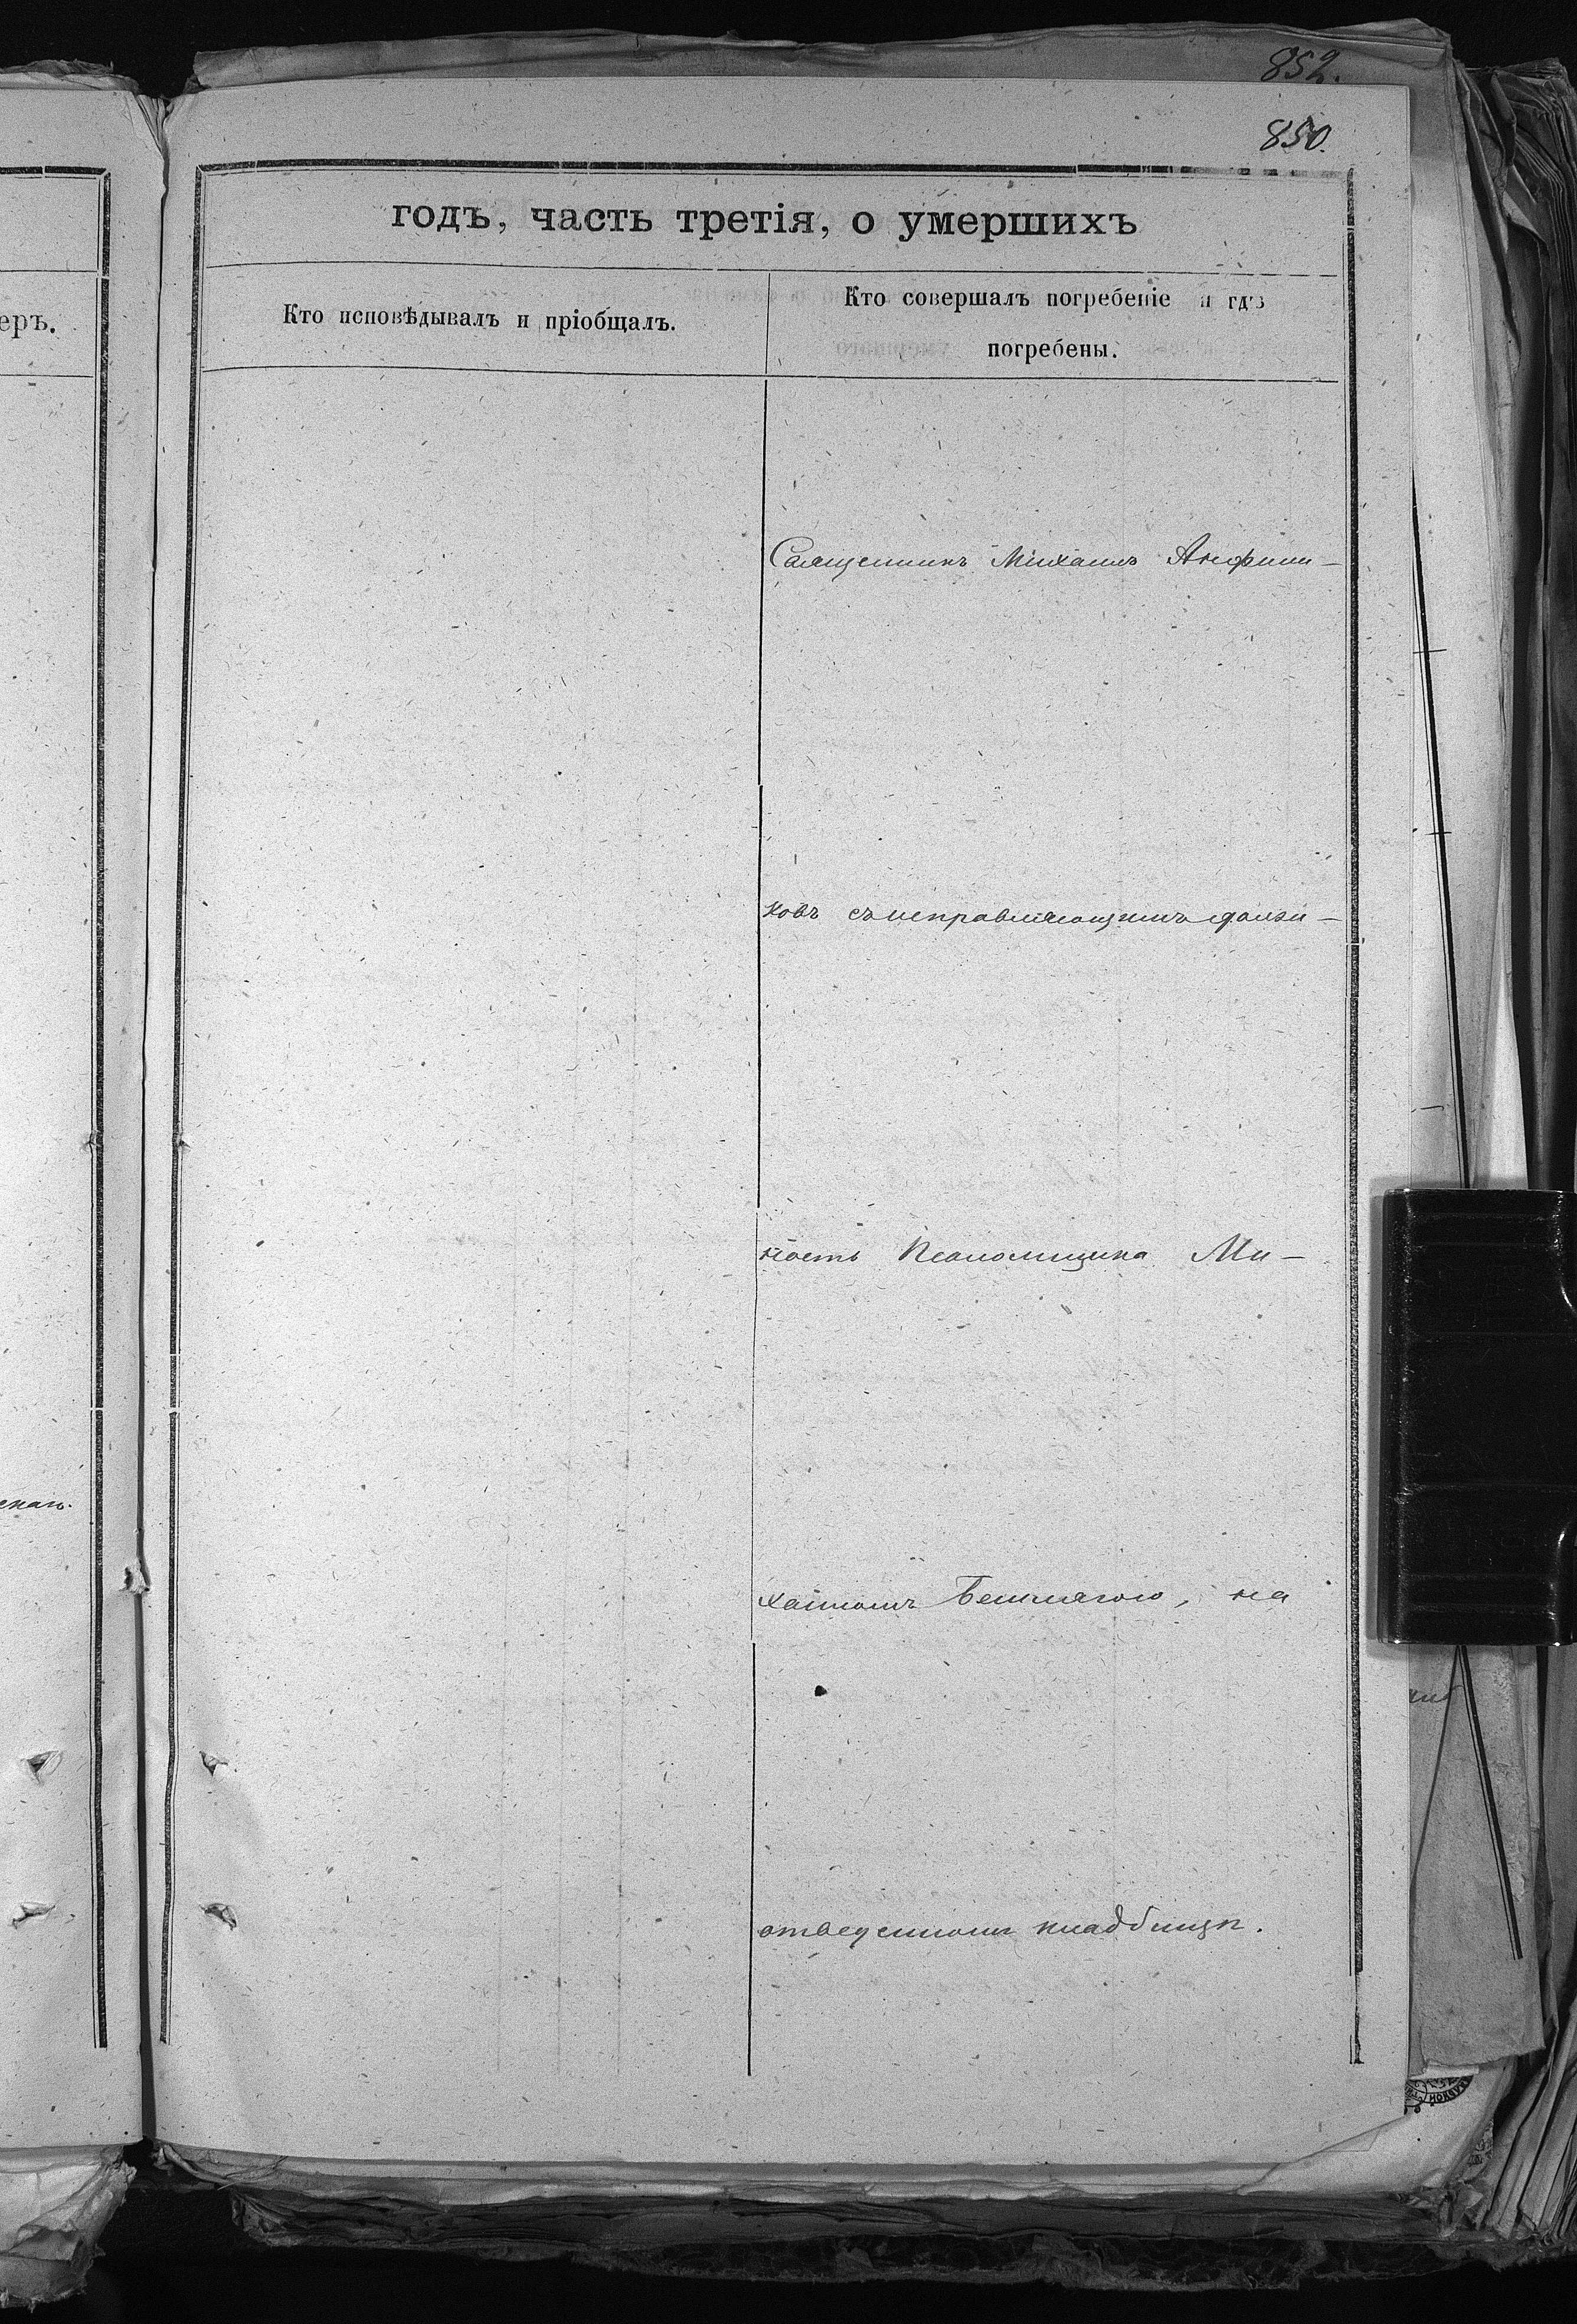 852.
850.
годъ, часть третія, о умершихъ
еръ.
Кто исповѣдывалъ и пріобщалъ.
Кто совершалъ погребеніе и гдѣ
погребены.
Священникъ Михаилъ Анфини-
ковъ съ исправляющимъ должн-
ность Псаломщика Ми-
хаиломъ на
отведенномъ кладбищѣ.